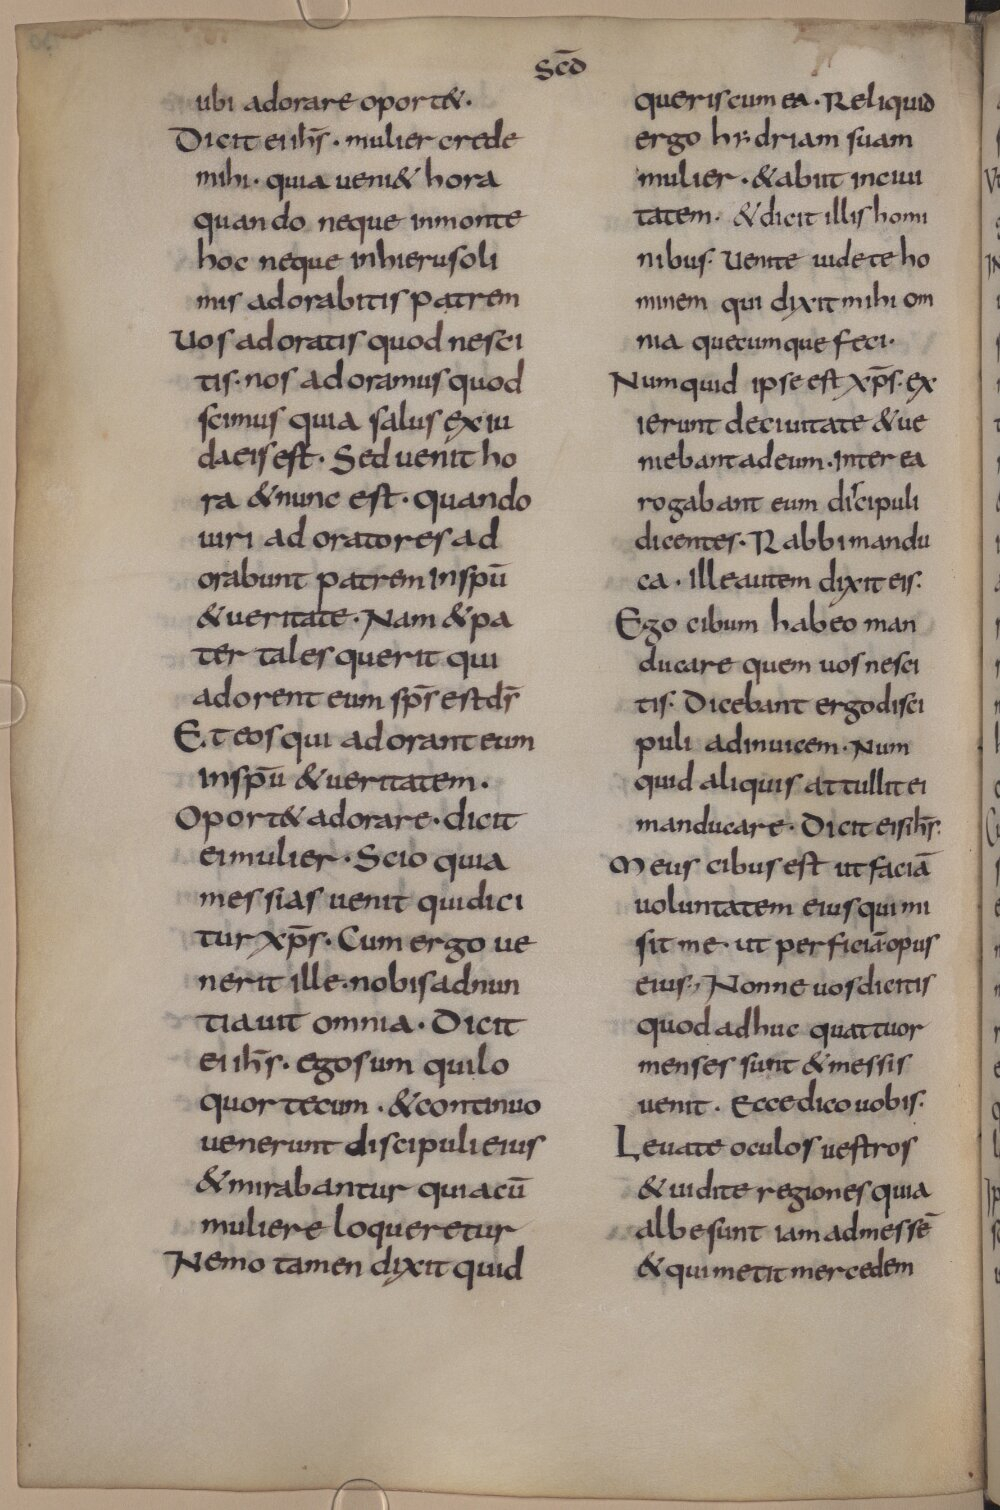 scd̄
ubi adorare oport&.
Dicit ei ih̄s. mulier crede
mihi. quia ueni& hora
quando neque inmonte
hoc neque inhierusoli
mis adorabitis patrem
Uos adoratis quod nesci
tis. nos adoramus quod
scimus quia salus exiu
daeis est. Sed uenit ho
ra & nunc est. quando
uiri adoratores ad
orabunt patrem inspū
& ueritate. Nam & pa
ter tales querit qui
adorent eum sp̄s est ds̄
Et eos qui adorant eum
inspū & ueritatem.
Oport& adorare. dicit
ei mulier. Scio quia
messias uenit qui dici
tur xp̄s. Cum ergo ue
nerit ille. nobis adnun
tiauit omnia. Dicit
ei ih̄s. ego sum qui lo
quor tecum. & continuo
uenerunt discipuli eius
& mirabantur quia cū
muliere loqueretur
Nemo tamen dixit quid
queris cum ea. Reliquid
ergo hydriam suam
mulier. & abiit in ciui
tatem. & dicit illis homi
nibus. Uenite uidete ho
minem qui dixit mihi om
nia quecumque feci.
Numquid ipse est xp̄s. ex
ierunt de ciuitate & ue
niebant ad eum. Inter ea
rogabant eum discipuli
dicentes. Rabbi mandu
ca. Ille autem dixit eis.
Ego cibum habeo man
ducare quem uos nesci
tis. Dicebant ergo disci
puli adinuicem. Num
quid aliquis attullit ei
manducare. Dicit eis ih̄s.
Meus cibus est ut faciā
uoluntatem eius qui mi
sit me. ut perficiā opus
eius. Nonne uos dicitis
quod adhuc quattuor
menses sunt & messis
uenit. Ecce dico uobis.
Leuate oculos uestros
& uidite regiones quia
albe sunt iam ad messē
& qui metit mercedem